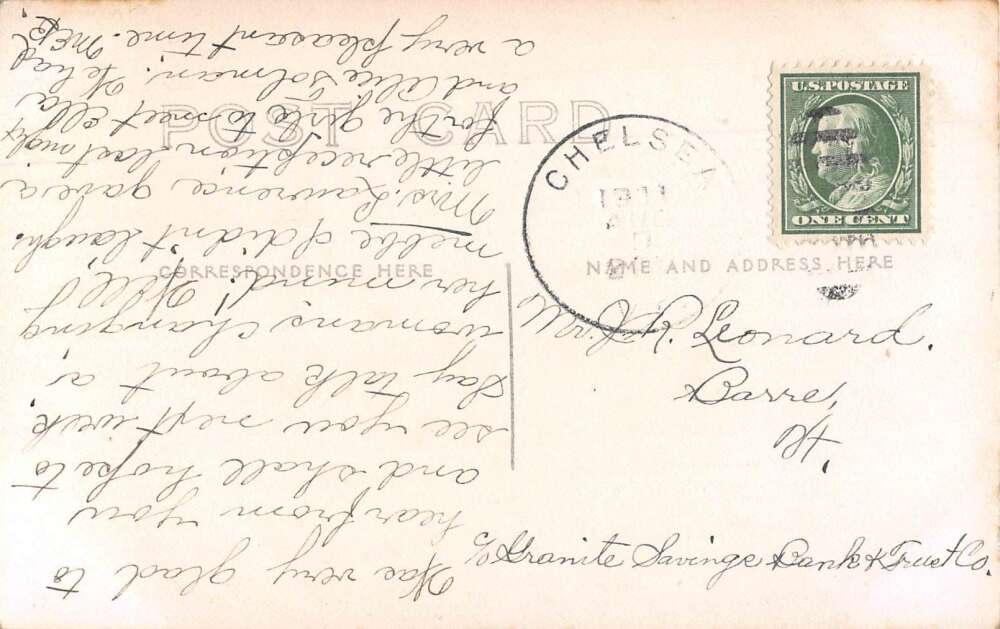 POST CARD
CORRESPONDENCE HERE
NAME AND ADDRESS HERE
U.S. POSTAGE
ONE CENT
CHELSEA
1911
AUG
Mr. J. R. Leonard.
Barre,
Vt.
c/o Granite Savings Bank & Trust Co.
Was very glad to
hear from you
and shall hope to
see you next week
Say talk about a
woman's changing
her mind! Well I
mebbe I didn't laugh.
Mrs. Lawrence gave a
little reception last night
for the girls to meet Ella
and Alice Tolman. We had
a very pleasant time.